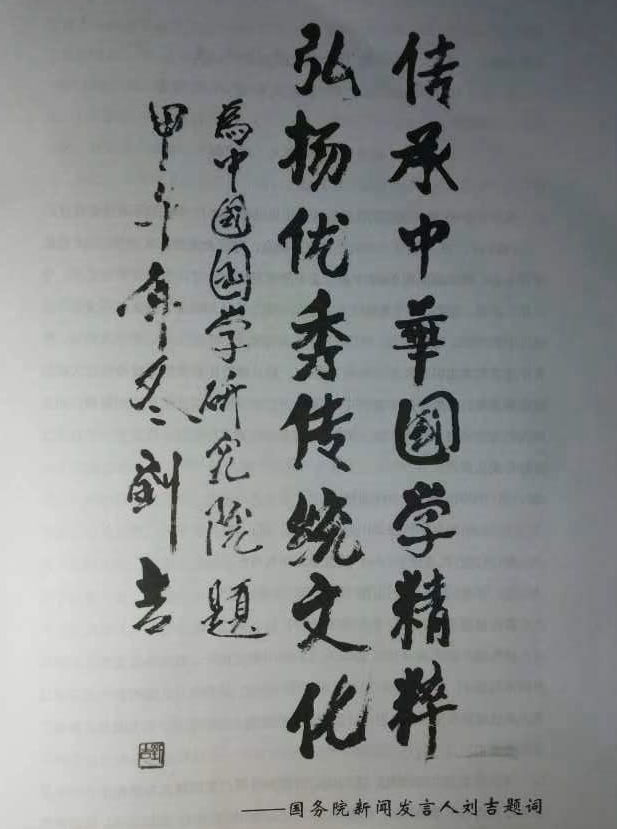 传承中華國学精粹
弘扬优秀传统文化
為中国國学研究院題
甲午年冬劉吉
劉吉
——国务院新闻发言人刘吉题词